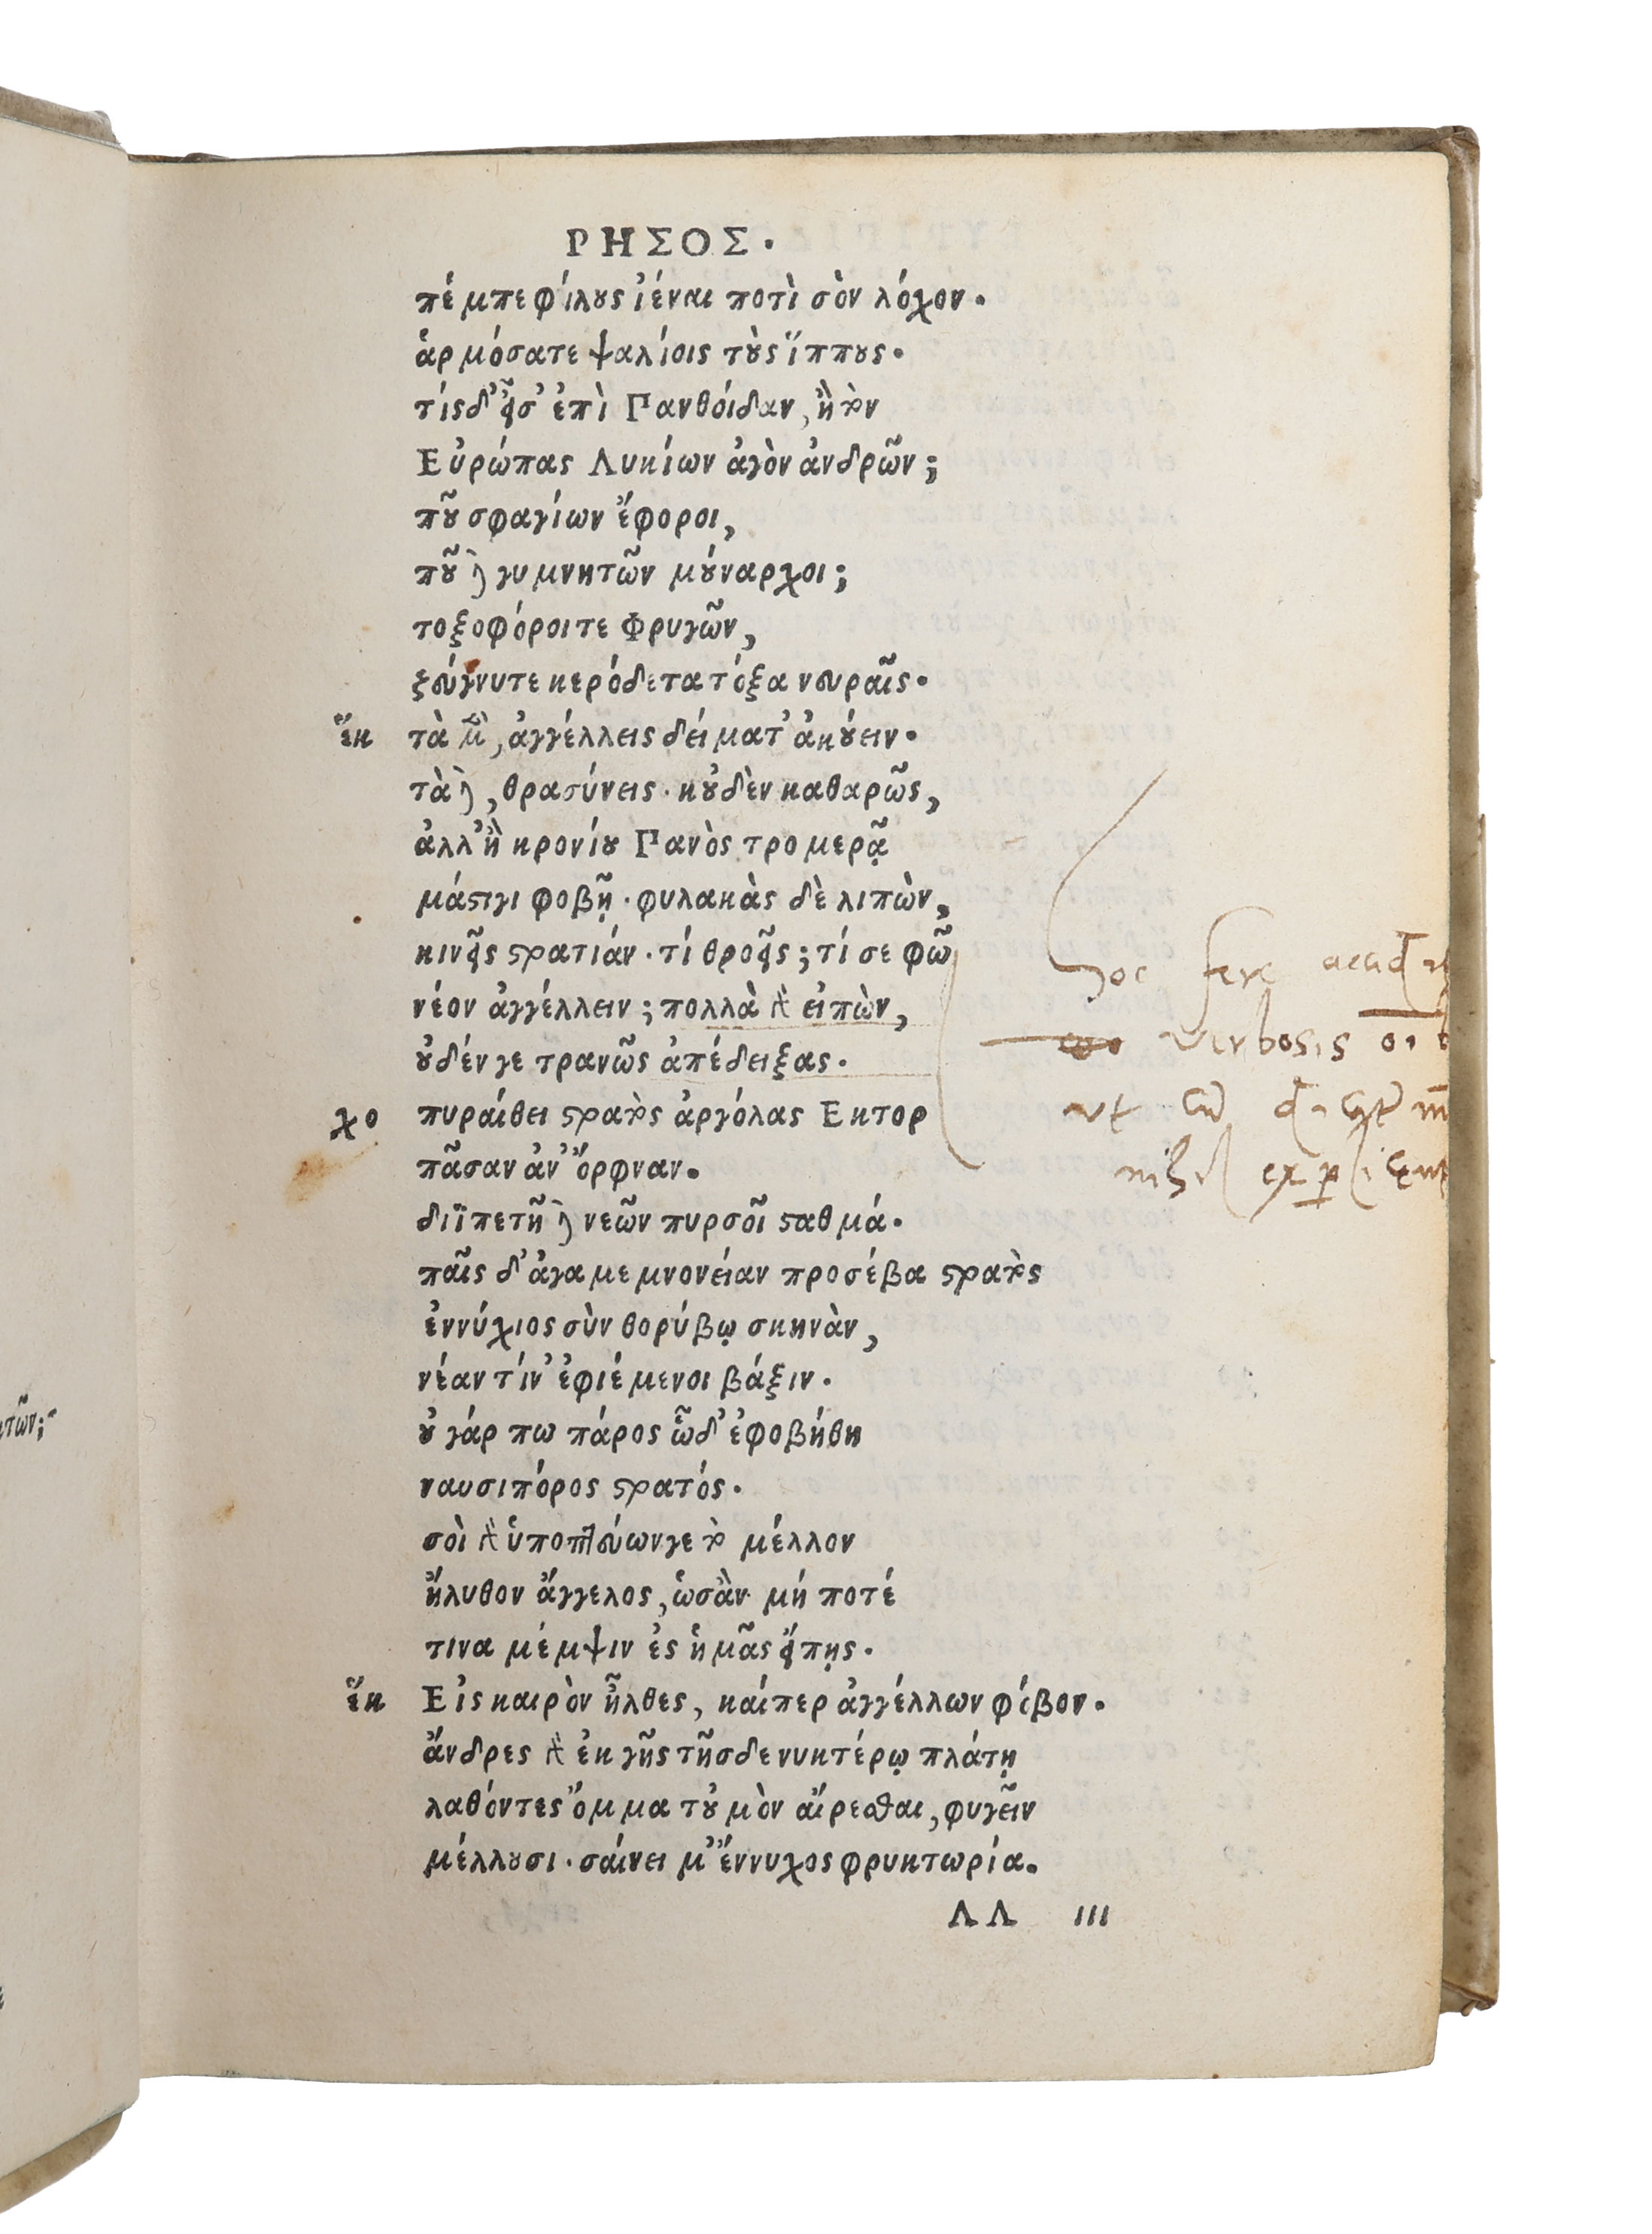 ΡΗΣΟΣ.
πέμπε φίλους ἰέναι ποτὶ σὸν λόχον.
ἁρμόσατε ψαλίοις τοὺς ἵππους.
τίς δ' εἶσ' ἐπὶ Πανθοίδαν, ἢ τὸν
Εὐρώπας Λυκίων ἀγὸν ἀνδρῶν;
ποῦ σφαγίων ἔφοροι,
ποῦ δὲ γυμνητῶν μούναρχοι;
τοξοφόροι τε Φρυγῶν,
ζεύγνυτε κερόδετα τόξα νευραῖς.
ἕκ τὰ μὲν, ἀγγέλλεις δείματ' ἀκούειν.
τὰ δὲ, θρασύνεις· κοὐδὲν καθαρῶς,
ἀλλ' ἢ κρονίου Πανὸς τρομερᾷ
μάστιγι φοβῇ· φυλακὰς δὲ λιπὼν,
κινεῖς στρατιάν· τί θροεῖς; τί σε φῶ
νέον ἀγγέλλειν; πολλὰ γὰρ εἰπὼν,
οὐδέν γε τρανῶς ἀπέδειξας.
χο πυραίθει στρατὸς ἀργόλας Εκτορ
πᾶσαν ἀν' ὄρφναν.
διϊπετῆ δὲ νεῶν πυρσοῖ σταθμά.
παῖς δ' ἀγαμεμνονείαν προσέβα στρατὸς
ἐννύχιος σὺν θορύβῳ σκηνὰν,
νέαν τίν' ἐφιέμενοι βάξιν.
οὐ γάρ πω πάρος ὧδ' ἐφοβήθη
ναυσιπόρος στρατός.
σοὶ γὰρ ὑποπτεύων γε τὸ μέλλον
ἤλυθον ἄγγελος, ὡς ἂν μή ποτέ
τινα μέμψιν ἐς ἡμᾶς εἴπῃς.
ἕκ Εἰς καιρὸν ἦλθες, καίπερ ἀγγέλλων φόβον.
ἄνδρες γὰρ ἐκ γῆς τῆσδε νυκτέρῳ πλάτῃ
λαθόντες ὄμμα τοὐμὸν αἴρεσθαι, φυγεῖν
μέλλουσι· σαίνει μ' ἔννυχος φρυκτωρία.
ΛΛ iii
hoc fere
verbosis
ut
nihil
τῶν;